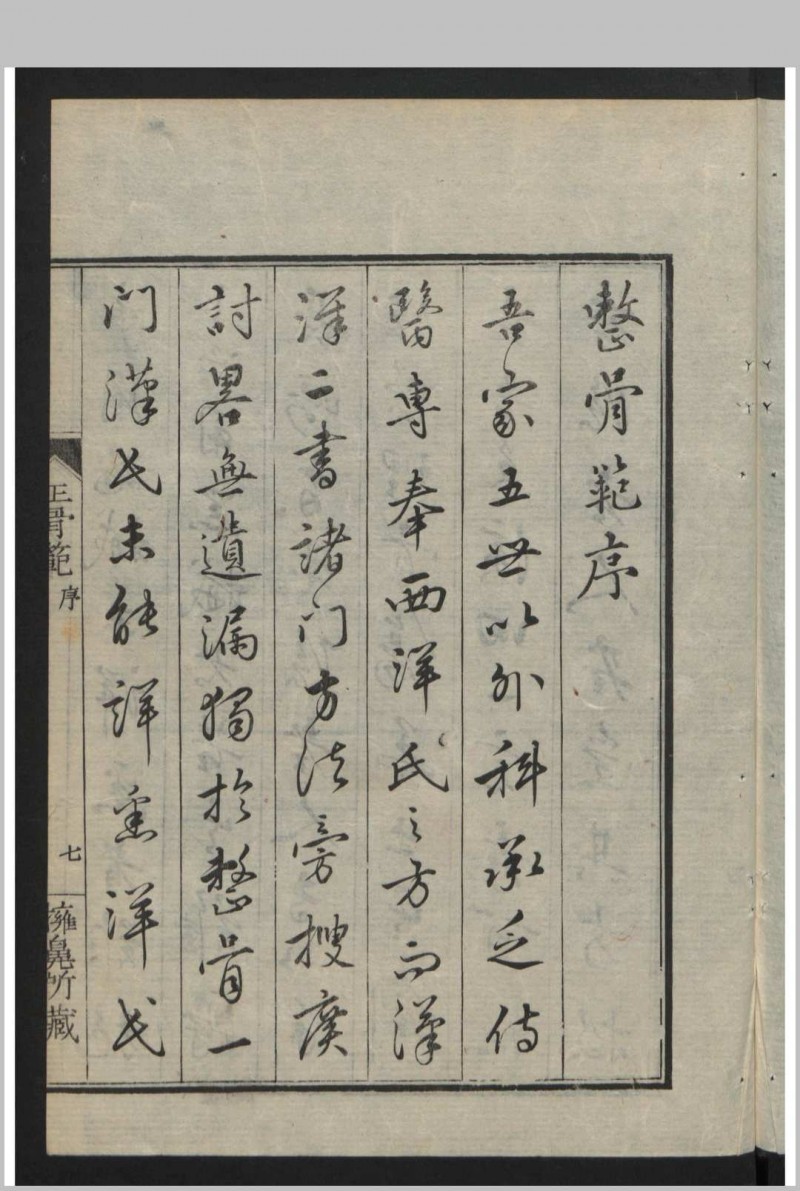 整骨範序
吾家五世以外科承乏侍
醫專奉西洋氏之方而漢
洋二書諸门方法旁搜廣
討畧無遺漏獨於整骨一
门漢氏未能詳悉洋氏
正骨範 序 七
所藏